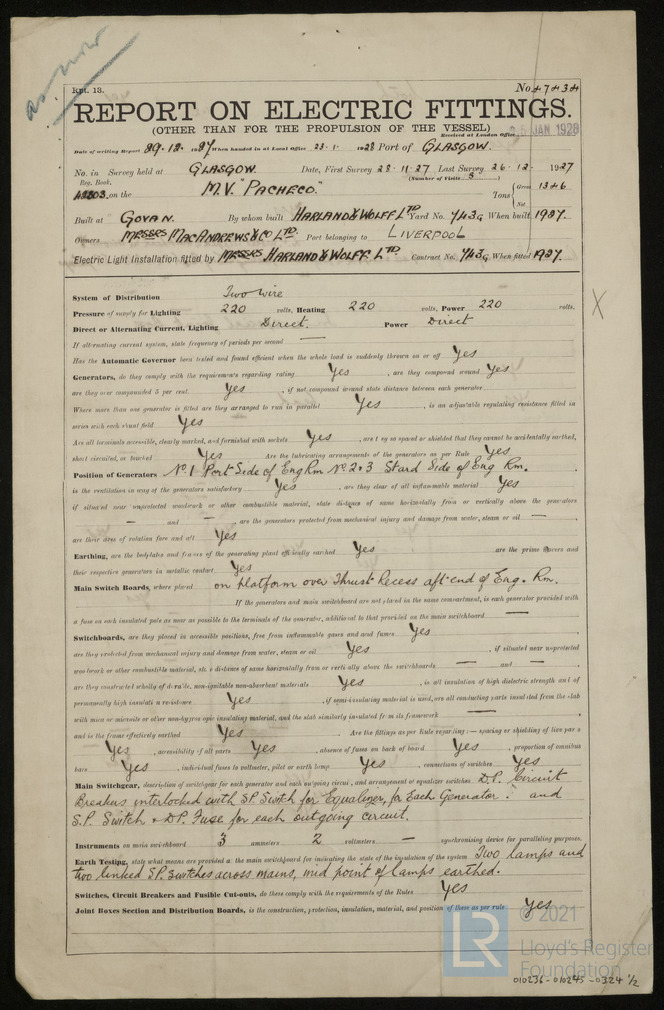 as now
Rpt. 13.
No. 47434
REPORT ON ELECTRIC FITTINGS.
(OTHER THAN FOR THE PROPULSION OF THE VESSEL)
Received at London Office 25 JAN 1928
Date of writing Report 29.12.1927 When handed in at Local Office 23.1.1928 Port of GLASGOW.
No. in Survey held at GLASGOW. Date, First Survey 28.11.27 Last Survey 26.12.1927
Reg. Book. (Number of Visits 8)
on the M.V. "PACHECO." Tons { Gross 1346
Net
Built at GOVAN. By whom built HARLAND & WOLFF LTD Yard No. 743G When built 1927.
Owners MESSRS MACANDREWS & CO LTD. Port belonging to LIVERPOOL
Electric Light Installation fitted by MESSRS HARLAND & WOLFF LTD. Contract No. 743G When fitted 1927.
System of Distribution Two wire
Pressure of supply for Lighting 220 volts, Heating 220 volts, Power 220 volts.
Direct or Alternating Current, Lighting Direct. Power Direct
If alternating current system, state frequency of periods per second —
Has the Automatic Governor been tested and found efficient when the whole load is suddenly thrown on or off Yes
Generators, do they comply with the requirements regarding rating Yes , are they compound wound Yes
are they over compounded 5 per cent. Yes , if not compound wound state distance between each generator
Where more than one generator is fitted are they arranged to run in parallel Yes , is an adjustable regulating resistance fitted in
series with each shunt field Yes
Are all terminals accessible, clearly marked, and furnished with sockets Yes , are they so spaced or shielded that they cannot be accidentally earthed,
short circuited, or touched Yes Are the lubricating arrangements of the generators as per Rule Yes
Position of Generators No. 1 Port Side of Eng Rm No 2 & 3 Stard Side of Eng Rm.
is the ventilation in way of the generators satisfactory Yes , are they clear of all inflammable material Yes
if situated near unprotected woodwork or other combustible material, state distance of same horizontally from or vertically above the generators
— and — are the generators protected from mechanical injury and damage from water, steam or oil —
are their axes of rotation fore and aft Yes
Earthing, are the bedplates and frames of the generating plant efficiently earthed Yes are the prime movers and
their respective generators in metallic contact Yes
Main Switch Boards, where placed on platform over Thrust Recess aft end of Eng. Rm.
If the generators and main switchboard are not placed in the same compartment, is each generator provided with
a fuse on each insulated pole as near as possible to the terminals of the generator, additional to that provided on the main switchboard —
Switchboards, are they placed in accessible positions, free from inflammable gases and acid fumes Yes
are they protected from mechanical injury and damage from water, steam or oil Yes , if situated near unprotected
woodwork or other combustible material, state distance of same horizontally from or vertically above the switchboards — and —
are they constructed wholly of durable, non-ignitable non-absorbent materials Yes , is all insulation of high dielectric strength and of
permanently high insulation resistance Yes , if semi-insulating material is used, are all conducting parts insulated from the slab
with mica or micanite or other non-hygroscopic insulating material, and the slab similarly insulated from its framework —
and is the frame effectively earthed Yes Are the fittings as per Rule regarding:— spacing or shielding of live parts
Yes , accessibility of all parts Yes , absence of fuses on back of board Yes , proportion of omnibus
bars Yes , individual fuses to voltmeter, pilot or earth lamp Yes , connections of switches Yes
Main Switchgear, description of switchgear for each generator and each outgoing circuit, and arrangement of equalizer switches D.P. Circuit
Breakers interlocked with SP. Switch for Equalizer, for Each Generator: and
S.P. Switch & DP. Fuse for each outgoing circuit.
Instruments on main switchboard 3 ammeters 2 voltmeters — synchronising device for paralleling purposes.
Earth Testing, state what means are provided at the main switchboard for indicating the state of the insulation of the system Two lamps and
two linked S.P. Switches across mains, mid point of lamps earthed.
Switches, Circuit Breakers and Fusible Cut-outs, do these comply with the requirements of the Rules Yes
Joint Boxes Section and Distribution Boards, is the construction, protection, insulation, material, and position of these as per rule Yes
LR © 2021
Lloyd's Register
Foundation
010236-010245-0324 1/2